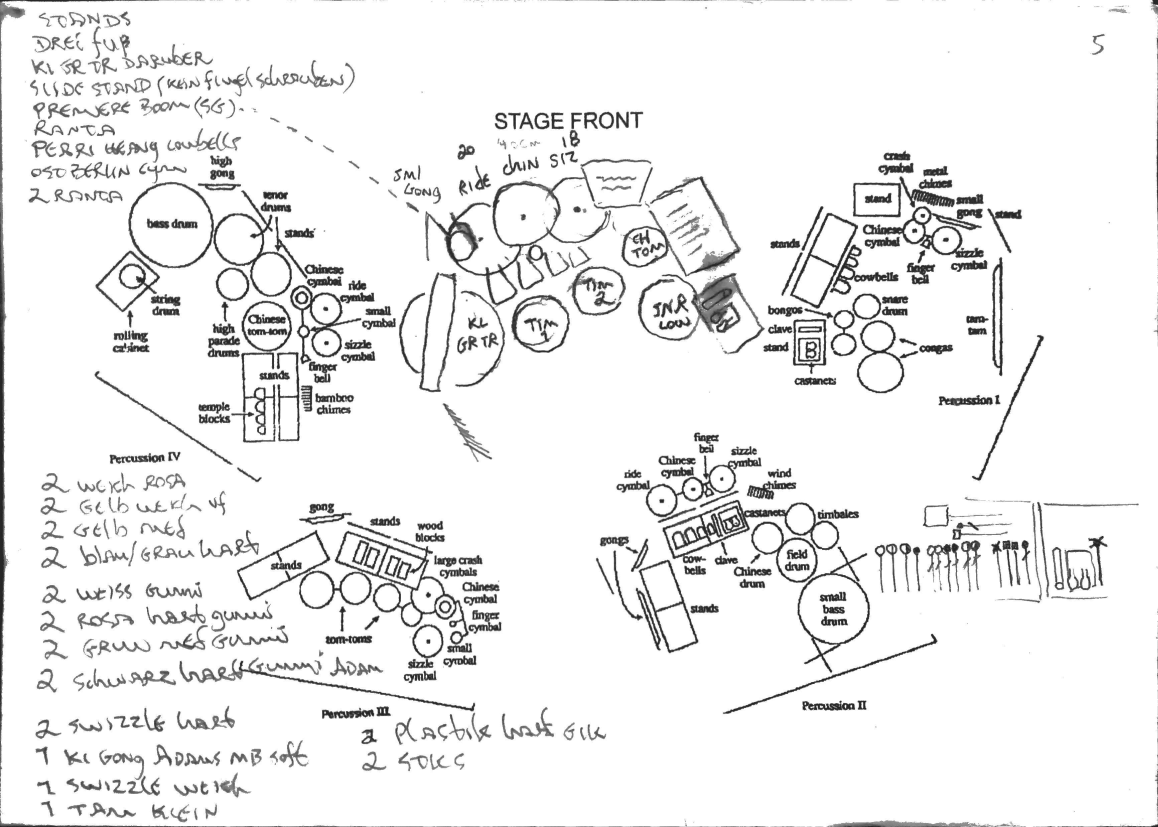 STANDS
DREifuß
KL GR TR DARUBER
SLIDE STAND (KEIN flügelschrauben)
PREMIERE BOOM (SG)
RANTA
PERRI HEANG cowbells
OSTBERLIN Cym
2 RANTA
5
STAGE FRONT
20
40cm
18
RIDE
CHIN
SIZ
SML
GONG
KL
GR TR
TIM
1
TIM
2
CH
TOM
SNR
LOW
high
gong
bass drum
tenor
drums
stands
string
drum
rolling
cabinet
high
parade
drums
Chinese
tom-tom
Chinese
cymbal
ride
cymbal
small
cymbal
sizzle
cymbal
finger
bell
stands
temple
blocks
bamboo
chimes
Percussion IV
crash
cymbal
metal
chimes
stand
small
gong
stand
stands
Chinese
cymbal
finger
bell
sizzle
cymbal
cowbells
bongos
snare
drum
clave
stand
castanets
congas
tam-
tam
Percussion I
gong
stands
wood
blocks
stands
large crash
cymbals
Chinese
cymbal
finger
cymbal
tom-toms
sizzle
cymbal
small
cymbal
Percussion III
ride
cymbal
Chinese
cymbal
finger
bell
sizzle
cymbal
wind
chimes
castanets
timbales
gongs
cow-
bells
clave
Chinese
drum
field
drum
stands
small
bass
drum
Percussion II
2 WEICH ROSA
2 GElb WEICH vf
2 GElb MED
2 blau/GRAU hart
2 WEISS GUMMI
2 ROSA hart gummi
2 GRUN MED GUMMI
2 SCHWARZ hart GUMMI ADAM
2 SWIZZLE hart
1 KL GONG ADAMS MB soft
1 SWIZZLE WEICH
1 TAM KLEIN
2 Plastik hart Glk
2 STKS